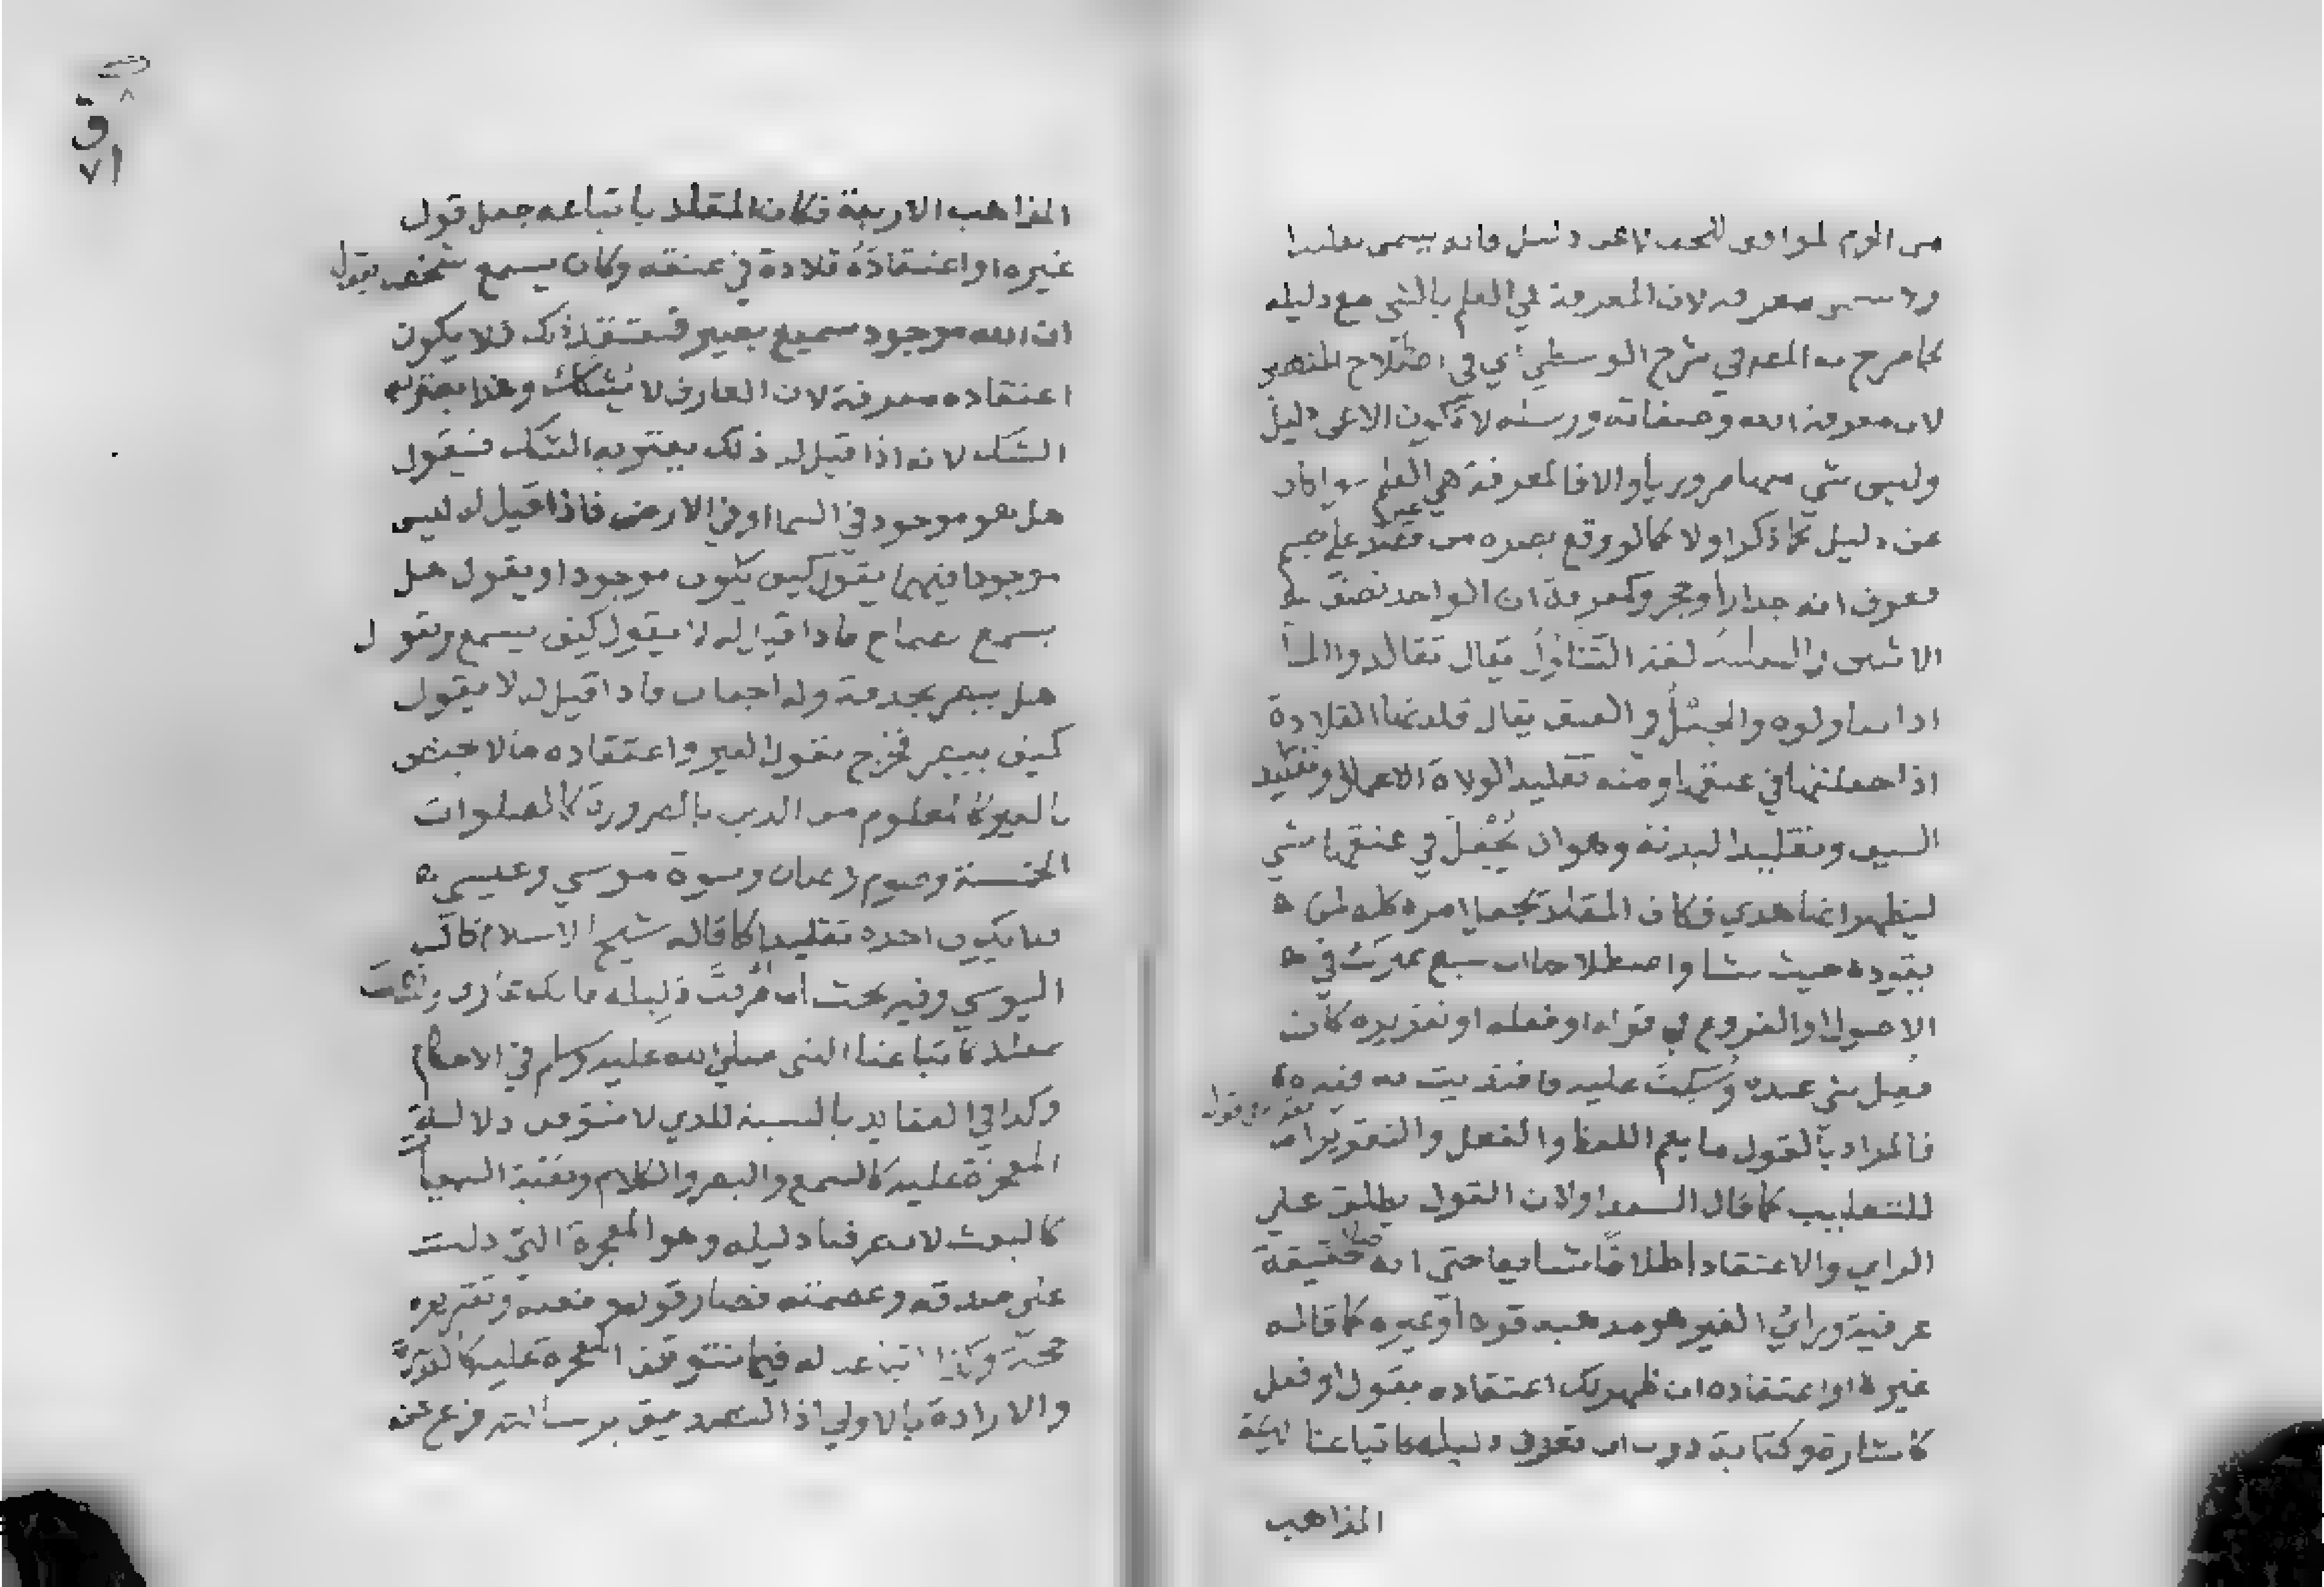 من الجزم الموافق للحق لا عن دليل فانه يسمى تقليدا
ولا يسمى معرفة لان المعرفة هي العلم بالشي مع دليله
كما صرح به المص في شرح الوسطي اي في اصطلاح
لان معرفة الله وصفاته ورسله لا تكون الا عن دليل
وليس شي منها ضروريا والا فالمعرفة هي العلم سوا كان
عن دليل كما ذكر اولا كما لو وقع بصره من غير قصد على جسم
فعرف انه جدار او حجر وكمعرفة ان الواحد نصف
الاثنين والتقليد لغة التناول يقال تقالدوا الما
اذا تناولوه والجعل في العنق يقال قلدتها القلادة
اذا جعلتها في عنقها ومنه تقليد الولاة الاعمال وتقليد
السيف وتقليد البدنة وهو ان يجعل في عنقها شي
ليظهر انها هدي فكان المقلد يجعل امره كله لمن
يقوده حيث شا واصطلاحا اتباع غيرك في
الاصول او الفروع في قوله او فعله او تقريره كان
فعل شي عنده وسكت عليه فاقتديت به فيه
فالمراد بالقول ما يعم اللفظ والفعل والتقرير اما
للتغليب كما قال السعد او لان القول يطلق على
الراي والاعتقاد اطلاقا شايعا حتى انه حقيقة
عرفية وراي الغير هو مذهبه قوله او غيره كما قاله
غيره او اعتقاده ان ظهر لك اعتقاده بقول او فعل
كاشارة وكتابة دون ان تعرف دليله كاتباعنا لايمة
المذاهب
المذاهب الاربعة فكان المقلد باتباعه جعل قول
غيره او اعتقاده قلادة في عنقه وكان يسمع شخص يقول
ان الله موجود سميع بصير فيعتقد ذلك فلا يكون
اعتقاده معرفة لان العارف لا يشك وهذا يعتريه
الشك لانه اذا قيل له ذلك يعتريه الشك فيقول
هل هو موجود في السما او في الارض فاذا قيل له ليس
موجودا فيهما يقول كيف يكون موجودا ويقول هل
يسمع بصماخ فاذا قيل له لا يقول كيف يسمع ويقول
هل يبصر بحدقة وله اجفان فاذا قيل له لا يقول
كيف يبصر فخرج بقول الغير واعتقاده ما لا يختص
بالغير كالمعلوم من الدين بالضرورة كالصلوات
الخمسة وصوم رمضان ونبوة موسي وعيسي
فلا يكون اخذه تقليدا كما قاله شيخ الاسلام قال
اليوسي وفيه بحث ان عرفت دليله فانك عارف ولست
بمقلد كاتباعنا النبي صلي الله عليه وسلم في الاحكام
وكذا في العقايد بالنسبة للذي لا تتوقف دلالة
المعجزة عليه كالسمع والبصر والكلام وبقية السمعيات
كالبعث لانا عرفنا دليله وهو المعجزة التي دلت
على صدقه وعصمته فصار قوله وفعله وتقريره
حجة وكذا اتباعه له فيما تتوقف المعجزة عليه كالقدرة
والارادة بالاولي اذ التصديق برسالته فرع عن